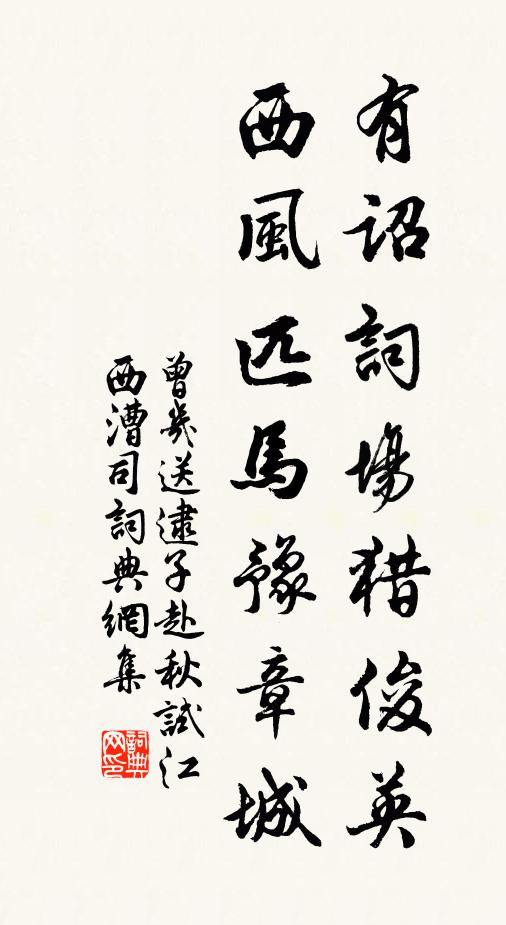 有詔詞場猎俊英
西風匹馬豫章城
曾幾送逮子赴秋試江
西漕司詞典網集
詞典网印